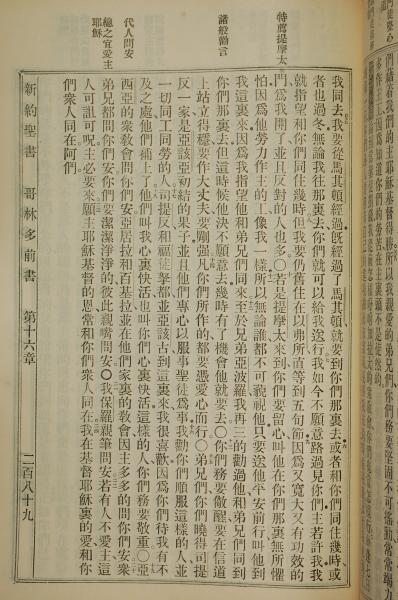 們藉着我們的主耶穌基督得勝所以我親愛的弟兄們你們務要堅固不可搖動常常竭力
特薦提摩太
諸般勸言
代人問安
總之宜愛主
耶穌
我同去我要從馬其頓經過旣經過了馬其頓就要到你們那裏去或者和你們同住幾時或
者也過冬無論我往那裏去你們就可以給我送行我如今不願意路過見你們主若許我我
就指望和你們同住幾時但我要仍舊住在以弗所直等到五旬節因爲又寬大又有功效的
門爲我開了並且反對的人也多○若是提摩太來到你們要留心叫他在你們那裏無所懼
怕因爲他勞力作主的工像我一樣所以無論誰都不可藐視他只要送他平安前行叫他到
我這裏來因爲我指望他和弟兄們同來至於兄弟亞波羅我再三的勸過他和弟兄們同到
你們那裏去但這時候他決不願意去幾時有了機會他就要去○你們務要儆醒要在信道
上站立得穩要作大丈夫要剛強凡你們所作的都要憑愛心而行○弟兄們你們曉得司提
反一家是亞該亞初結的果子並且他們專心以服事聖徒爲事我勸你們順服這樣的人並
一切同工同勞的人司提反和福徒拏都並亞該古到這裏來我很喜歡因爲你們待我有不
及之處他們補上了他們叫我心裏快活也叫你們心裏快活這樣的人你們務要敬重○亞
西亞的衆敎會問你們安亞居拉和百基拉並在他們家裏的敎會因主多多的問你們安衆
弟兄都問你們安你們要潔潔淨淨的彼此親嘴問安○我保羅親筆問安若有人不愛主這
人可詛可咒主必要來願主耶穌基督的恩常和你們衆人同在我在基督耶穌裏的愛和你
們衆人同在阿們
新約聖書 哥林多前書 第十六章 二百八十九